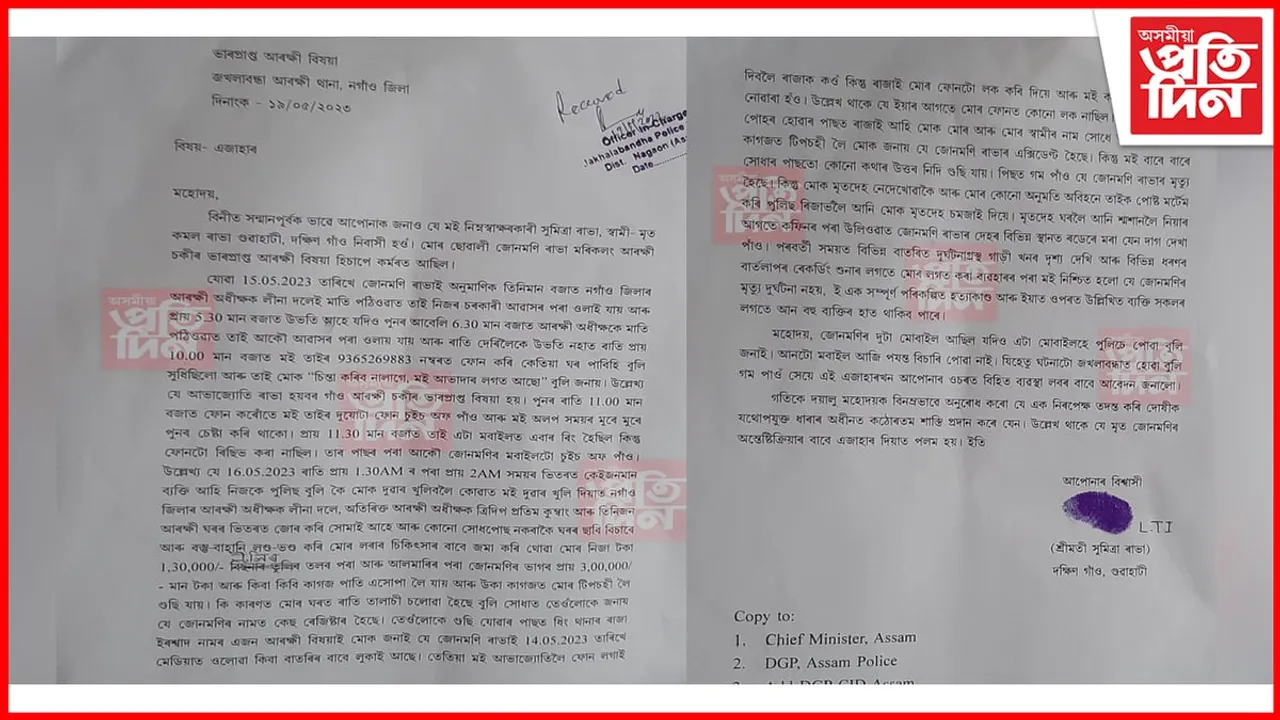 ভাৰপ্ৰাপ্ত আৰক্ষী বিষয়া
জখলাবন্ধা আৰক্ষী থানা, নগাঁও জিলা
দিনাংক - ১৯/০৫/২০২৩
Received
Officer In-Charge
Jakhalabandha Police
Dist. Nagaon (As
Date
বিষয়- এজাহাৰ
মহোদয়,
বিনীত সন্মানপূৰ্বক ভাৱে আপোনাক জনাওঁ যে মই নিম্নস্বাক্ষৰকাৰী সুমিত্ৰা ৰাভা, স্বামী- মৃত
কমল ৰাভা গুৱাহাটী, দক্ষিণ গাঁও নিবাসী হওঁ। মোৰ ছোৱালী জোনমণি ৰাভা মৰিকলং আৰক্ষী
চকীৰ ভাৰপ্ৰাপ্ত আৰক্ষী বিষয়া হিচাপে কৰ্মৰত আছিল।
যোৱা 15.05.2023 তাৰিখে জোনমণি ৰাভাই অনুমাণিক তিনিমান বজাত নগাঁও জিলাৰ
আৰক্ষী অধীক্ষক লীনা দলেই মাতি পঠিওৱাত তাই নিজৰ চৰকাৰী আৱাসৰ পৰা ওলাই যায় আৰু
প্ৰায় 5.30 মান বজাত উভতি আহে যদিও পুনৰ আবেলি 6.30 মান বজাত আৰক্ষী অধীক্ষকে মাতি
পঠিওৱাত তাই আকৌ আৱাসৰ পৰা ওলায় যায় আৰু ৰাতি দেৰিলৈকে উভতি নহাত ৰাতি প্ৰায়
10.00 মান বজাত মই তাইৰ 9365269883 নম্বৰত ফোন কৰি কেতিয়া ঘৰ পাবিহি বুলি
সুধিছিলো আৰু তাই মোক "চিন্তা কৰিব নালাগে, মই আভাদাৰ লগত আছো" বুলি জনায়। উল্লেখ্য
যে আভাজ্যোতি ৰাভা হয়বৰ গাঁও চকীৰ ভাৰপ্ৰাপ্ত বিষয়া হয়। পুনৰ ৰাতি 11.00 মান
বজাত ফোন কৰোঁতে মই তাইৰ দুয়োটা ফোন চুইচ অফ পাওঁ আৰু মই অলপ সময়ৰ মূৰে মূৰে
পুনৰ চেষ্টা কৰি থাকো। প্ৰায় 11.30 মান বজাত তাই এটা মবাইলত এবাৰ ৰিং হৈছিল কিন্তু
ফোনটো ৰিছিভ কৰা নাছিল। তাৰ পাছৰ পৰা আকৌ জোনমণিৰ মবাইলটো চুইচ অফ পাওঁ।
উল্লেখ্য যে 16.05.2023 ৰাতি প্ৰায় 1.30AM ৰ পৰা প্ৰায় 2AM সময়ৰ ভিতৰত কেইজনমান
ব্যক্তি আহি নিজকে পুলিছ বুলি কৈ মোক দুৱাৰ খুলিবলৈ কোৱাত মই দুৱাৰ খুলি দিয়াত নগাঁও
জিলাৰ আৰক্ষী অধীক্ষক লীনা দলে, অতিৰিক্ত আৰক্ষী অধীক্ষক ত্ৰিদিপ প্ৰতিম কুম্বাং আৰু তিনিজন
আৰক্ষী ঘৰৰ ভিতৰত জোৰ কৰি সোমাই আহে আৰু কোনো সোধপোছ নকৰাকৈ ঘৰৰ ছাবি বিচাৰে
আৰু বস্তু-বাহানি লণ্ড-ভণ্ড কৰি মোৰ লৰাৰ চিকিৎসাৰ বাবে জমা কৰি থোৱা মোৰ নিজা টকা
1,30,000/- তলৰ পৰা আৰু আলমাৰিৰ পৰা জোনমণিৰ ভাগৰ প্ৰায় 3,00,000/
- মান টকা আৰু কিবা কিবি কাগজ পাতি এসোপা লৈ যায় আৰু উকা কাগজত মোৰ টিপচহী লৈ
গুছি যায়। কি কাৰণত মোৰ ঘৰত ৰাতি তালাচী চলোৱা হৈছে বুলি সোধাত তেওঁলোকে জনায়
যে জোনমণিৰ নামত কেছ ৰেজিষ্টাৰ হৈছে। তেওঁলোকে গুছি যোৱাৰ পাছত ধিং থানাৰ ৰাজা
ইৰশ্বাদ নামৰ এজন আৰক্ষী বিষয়াই মোক জনাই যে জোনমণি ৰাভাই 14.05.2023 তাৰিখে
মেডিয়াত ওলোৱা কিবা বাতৰিৰ বাবে লুকাই আছে। তেতিয়া মই আভাজ্যোতিলৈ ফোন লগাই
দিবলৈ ৰাজাক কওঁ কিন্তু ৰাজাই মোৰ ফোনটো লক কৰি দিয়ে আৰু মই
নোৱাৰা হওঁ। উল্লেখ থাকে যে ইয়াৰ আগতে মোৰ ফোনত কোনো লক নাছিল।
পোহৰ হোৱাৰ পাছত ৰাজাই আহি মোক মোৰ আৰু মোৰ স্বামীৰ নাম সোধে
কাগজত টিপচহী লৈ মোক জনায় যে জোনমণি ৰাভাৰ এক্সিডেন্ট হৈছে। কিন্তু মই বাৰে বাৰে
সোধাৰ পাছতো কোনো কথাৰ উত্তৰ নিদি গুছি যায়। পিছত গম পাওঁ যে জোনমণি ৰাভাৰ মৃত্যু
হৈছে। কিন্তু মোক মৃতদেহ নেদেখোৱাকৈ আৰু মোৰ কোনো অনুমতি অবিহনে তাইক পোষ্ট মৰ্টেম
কৰি পুলিছ ৰিজাৰ্ভলৈ আনি মোক মৃতদেহ চমজাই দিয়ে। মৃতদেহ ঘৰলৈ আনি শ্মশানলৈ নিয়াৰ
আগতে কফিনৰ পৰা উলিওৱাত জোনমণি ৰাভাৰ দেহৰ বিভিন্ন স্থানত ৰডেৰে মৰা যেন দাগ দেখা
পাওঁ। পৰবৰ্তী সময়ত বিভিন্ন বাতৰিত দুৰ্ঘটনাগ্ৰস্থ গাড়ী খনৰ দৃশ্য দেখি আৰু বিভিন্ন ধৰণৰ
বাৰ্তালাপৰ ৰেকৰ্ডিং শুনাৰ লগতে মোৰ লগত কৰা ব্যৱহাৰৰ পৰা মই নিশ্চিত হলো যে জোনমণিৰ
মৃত্যু দুৰ্ঘটনা নহয়, ই এক সম্পূৰ্ণ পৰিকল্পিত হত্যাকাণ্ড আৰু ইয়াত ওপৰত উল্লিখিত ব্যক্তি সকলৰ
লগতে আন বহু ব্যক্তিৰ হাত থাকিব পাৰে।
মহোদয়, জোনমণিৰ দুটা মোবাইল আছিল যদিও এটা মোবাইলহে পুলিচে পোৱা বুলি
জনাই। আনটো মবাইল আজি পৰ্যন্ত বিচাৰি পোৱা নাই। যিহেতু ঘটনাটো জখলাবন্ধাত হোৱা বুলি
গম পাওঁ সেয়ে এই এজাহাৰখন আপোনাৰ ওচৰত বিহিত ব্যৱস্থা লবৰ বাবে আবেদন জনালো।
গতিকে দয়ালু মহোদয়ক বিনম্ৰভাবে অনুৰোধ কৰো যে এক নিৰপেক্ষ তদন্ত কৰি দোষীক
যথোপযুক্ত ধাৰাৰ অধীনত কঠোৰতম শাস্তি প্ৰদান কৰে যেন। উল্লেখ থাকে যে মৃত জোনমণিৰ
অন্তেষ্টিক্ৰিয়াৰ বাবে এজাহাৰ দিয়াত পলম হয়। ইতি
আপোনাৰ বিশ্বাসী
L.T.I
(শ্ৰীমতী সুমিত্ৰা ৰাভা)
দক্ষিণ গাঁও, গুৱাহাটী
Copy to:
1. Chief Minister, Assam
2. DGP, Assam Police
অসমীয়া
প্ৰতি
দিন